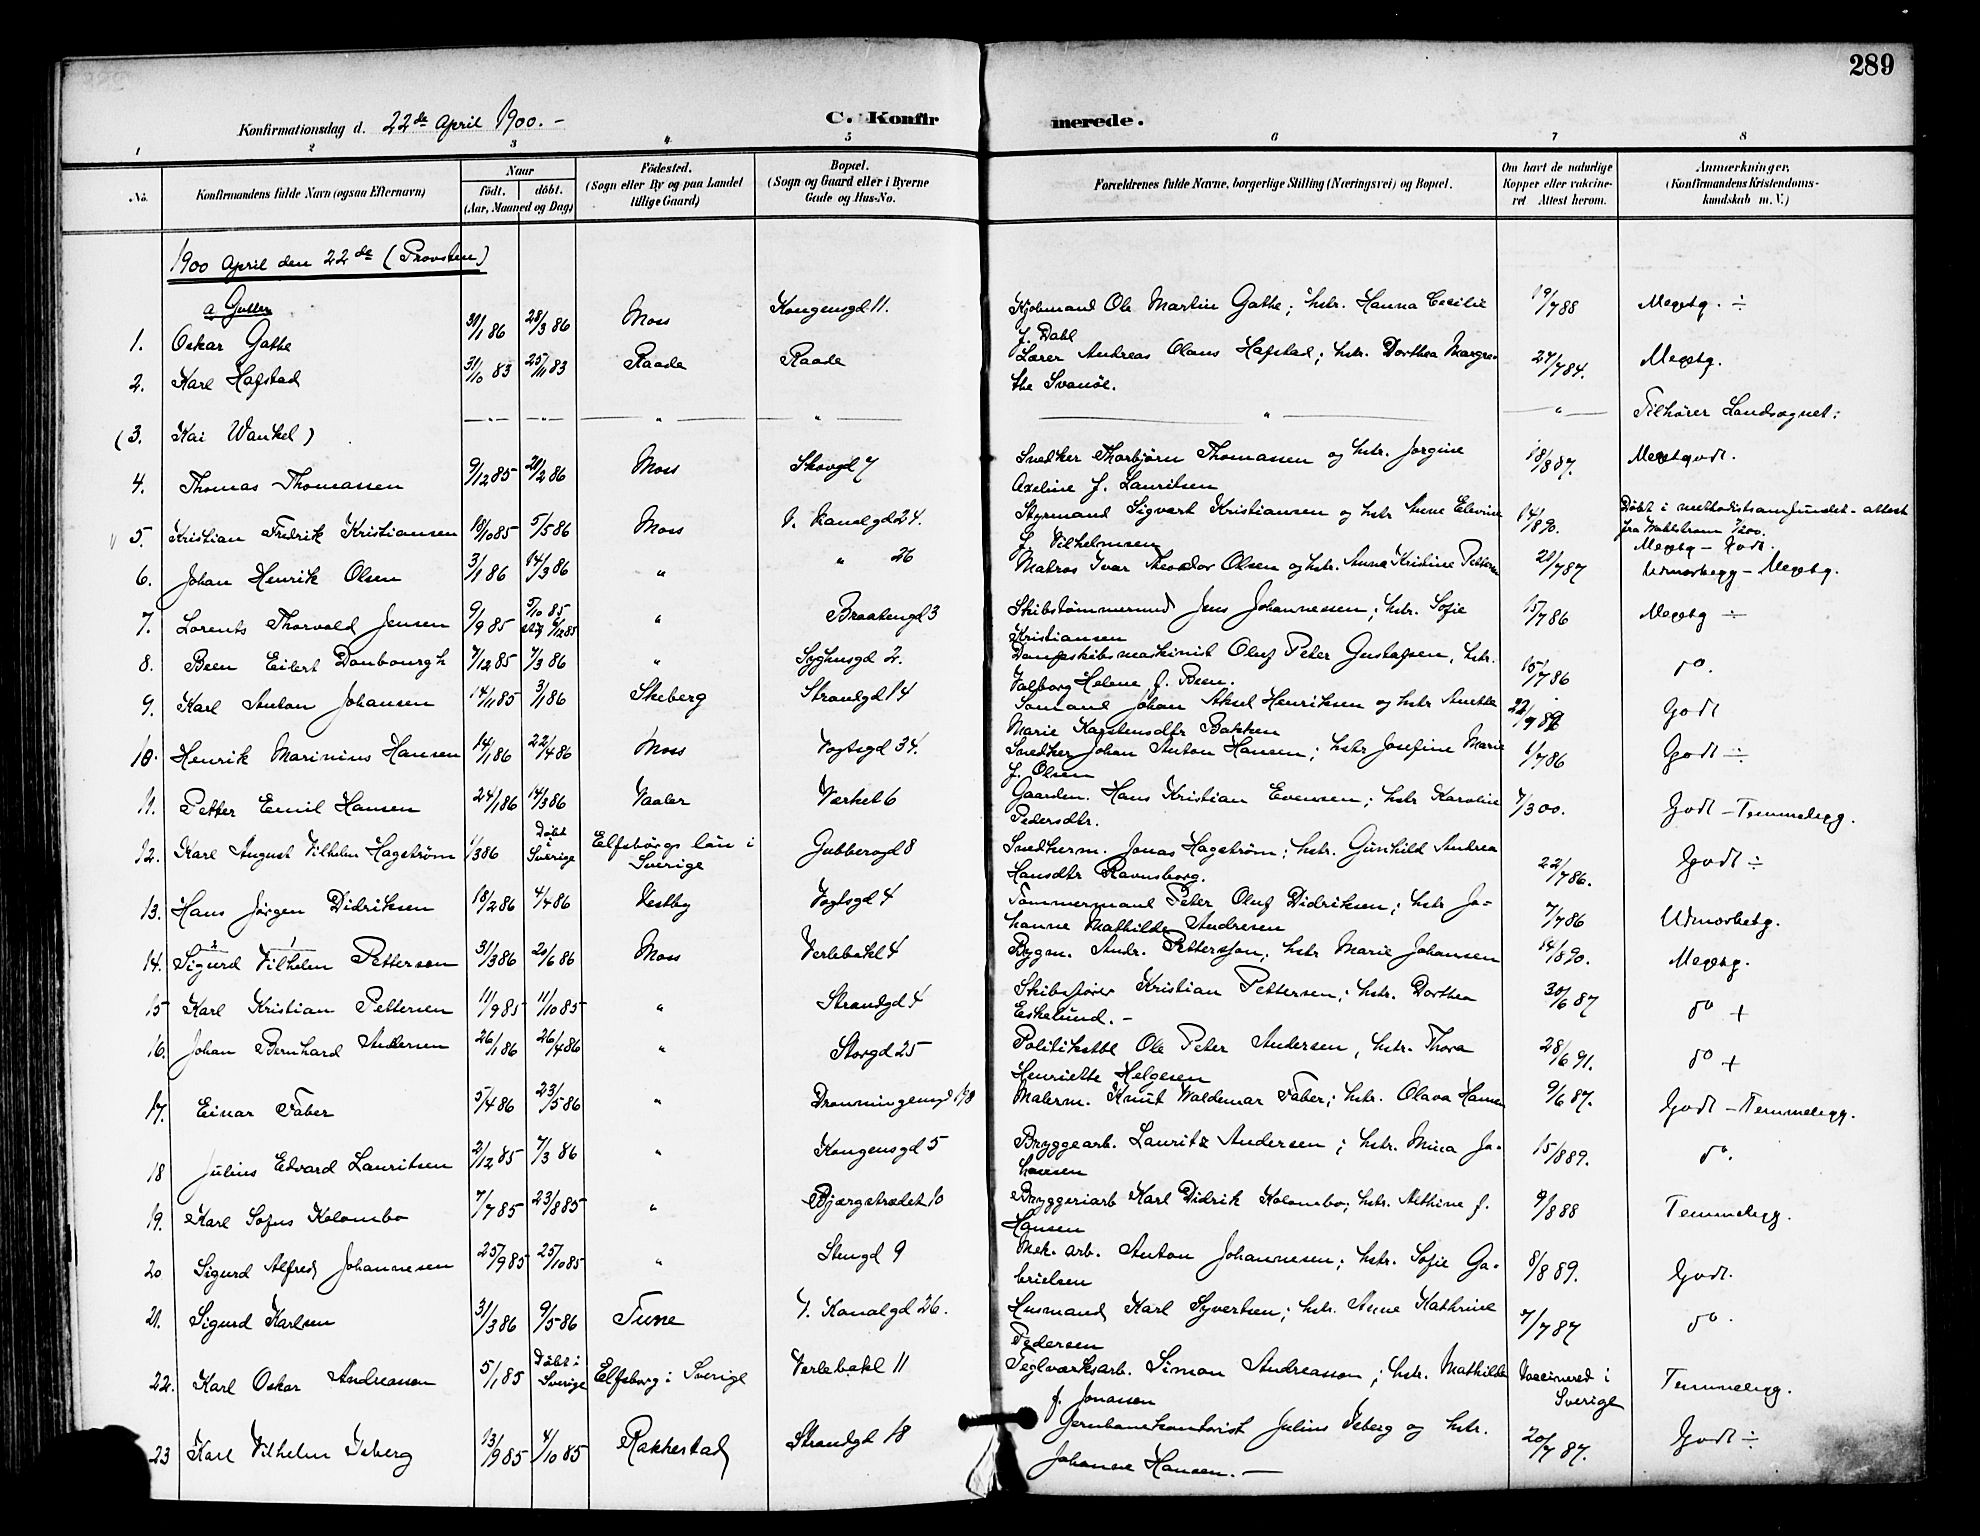 289
Konfirmationsdag d. 22de April 1900. –
C. Konfirmerede.
1 2 3 4 5 6 7 8
No.
Konfirmandens fulde Navn (ogsaa Efternavn)
Naar
födt. döbt.
(Aar, Maaned og Dag)
Födested.
(Sogn eller By og paa Landet
tillige Gaard)
Bopæl.
(Sogn og Gaard eller i Byerne
Gade og Hus-No.
Forældrenes fulde Navne, borgerlige Stilling (Næringsvei) og Bopæl.
Om havt de naturlige
Kopper eller vakcine-
ret Attest herom.
Anmærkninger,
(Konfirmandens Kristendoms-
kundskab m. V.)
1900 April den 22de (Provsten)
a Gutter
1. Oskar Gathe 31/1 86 28/3 86 Moss Kongensgd 11. Kjøbmand Ole Martin Gathe; hstr. Hanna Cecilie 19/7 88 Megetg. ÷
f. Dahl
2. Karl Hafstad 31/10 83 25/11 83 Raade Raade Lærer Andreas Olaus Hafstad; hstr. Dorthea Margre- 24/7 84. Megetg.
the Svanöe.
(3. Kai Wankel) — " — — " — " " " — " — Tilhører Landsognet.
4. Thomas Thomassen 9/12 85 21/2 86 Moss Skovgd 7 Snedker Thorbjørn Thomassen og hstr. Jørgine 18/8 87. Megetgodt.
Axeline f. Lauritsen
5. Kristian Fredrik Kristiansen 18/10 85 5/5 86 Moss V. Kanalgd 24. Styrmand Sigvart Kristiansen og hstr Anne Elevine 14/8 90. Döbt i methodistsamfundet – attest
f. Vilhelmsen fra Wahlstrøm
Megetg – Godt.
6. Johan Henrik Olsen 3/1 86 14/3 86 " " 26 Matros Ivar Theodor Olsen og hstr. Anna Kristine Pettersen 21/7 87 Udmærketg – Megetg.
7. Lorents Thorvald Jensen 9/9 85 5/10 85 " Braatengd 3 Skibstømmermd Jens Johannessen; hstr. Sofie 15/7 86 Megetg ÷
6/12 85 Kristiansen
8. Been Eilert Danbourgh 7/12 85 7/3 86 " Syghusgd 2. Dampskibsmaskinist Oluf Peter Gustafsen, hstr. 15/7 86 do.
Valborg Helene f. Been.
9. Karl Anton Johansen 14/11 85 3/1 86 Skeberg Strandgd 14 Sømand Johan Aksel Henriksen og hstr Anette Godt
Marie Karstensdtr Bakken
10. Henrik Marinius Hansen 14/1 86 22/4 86 Moss Vogtsgd 34. Snedker Johan Anton Hansen; hstr Josefine Marie 1/7 86 Godt ÷
f. Olsen
11. Petter Emil Hansen 24/1 86 14/3 86 Vaaler Værket 6 Gaarden. Hans Kristian Evensen; hstr Karoline 7/3 00. Godt – Temmeligg.
Pedersdtr.
12. Karl August Vilhelm Hagström 1/3 86 Döbt i Sverige Elfsborgs län i Gubberogd 8 Snedkerm. Jonas Hagström; hstr. Günhild Andrea 22/7 86. Godt ÷
Sverige Hansdtr Ravnsborg.
13. Hans Jörgen Didriksen 18/2 86 4/4 86 Vestby Vogtsgd 4 Tømmermand Peter Oluf Didriksen; hstr Jo- 7/7 86 Udmærketg.
hanne Mathilde Andresen
14. Sigurd Vilhelm Pettersen 31/3 86 20/6 86 Moss Verlebakl 4 Bygm. Andr. Pettersson; hstr Marie Johansen 14/8 90. Megetg.
15 Karl Kristian Pettersen 11/9 85 11/10 85 " Strandgd 4 Skibsfører Kristian Pettersen; hstr. Dorthea 30/6 87 do +
Eskelund. –
16. Johan Bernhard Andersen 26/1 86 26/4 86 " Storgd 25 Politikstbl Ole Peter Andersen, hstr. Thora 28/6 91. do +
Henriette Helgesen
17. Einar Faber 5/4 86 23/5 86 " Dronningensgd 18 Malerm. Knut Waldemar Faber; hstr. Olava Hansen 9/6 87. Godt – Temmeligg.
18 Julius Edvard Lauritsen 2/12 85 7/3 86 " Kongensgd 5 Bryggearb. Lauritz Andersen; hstr. Mina Jo- 15/8 89. do.
hansen
19. Karl Sofus Kolombo 7/7 85 23/8 85 " Bjergstrædet 10 Bryggeriarb Karl Didrik Kolombo; hstr. Althine f. 9/8 88 Temmeligg.
Hansen
20 Sigurd Alfred Johannesen 25/9 85 25/10 85 " Stengd 9 Mek. arb. Anton Johannesen; hstr. Sofie Ga- 8/8 89. Godt.
brielsen
21. Sigurd Karlsen 31/3 86 9/5 86 Tune V. Kanalgd 26. Husmand Karl Syvertsen; hstr. Anne Kathrine 7/7 87 do
Pedersen
22. Karl Oskar Andreassen 5/1 85 Döbt i Sverige Elfsborg i Sverige Verlebakl 11 Teglværksarb. Simon Andreasson; hstr. Mathilde Vaccineret i Sverige Temmeligg.
f. Jonassen
23 Karl Vilhelm Isberg 13/9 85 4/10 85 Rakkestad Strandgd 18 Jernbanekontorist Julius Isberg og hstr. 20/7 87. Godt ÷
Johanne Hansen. –